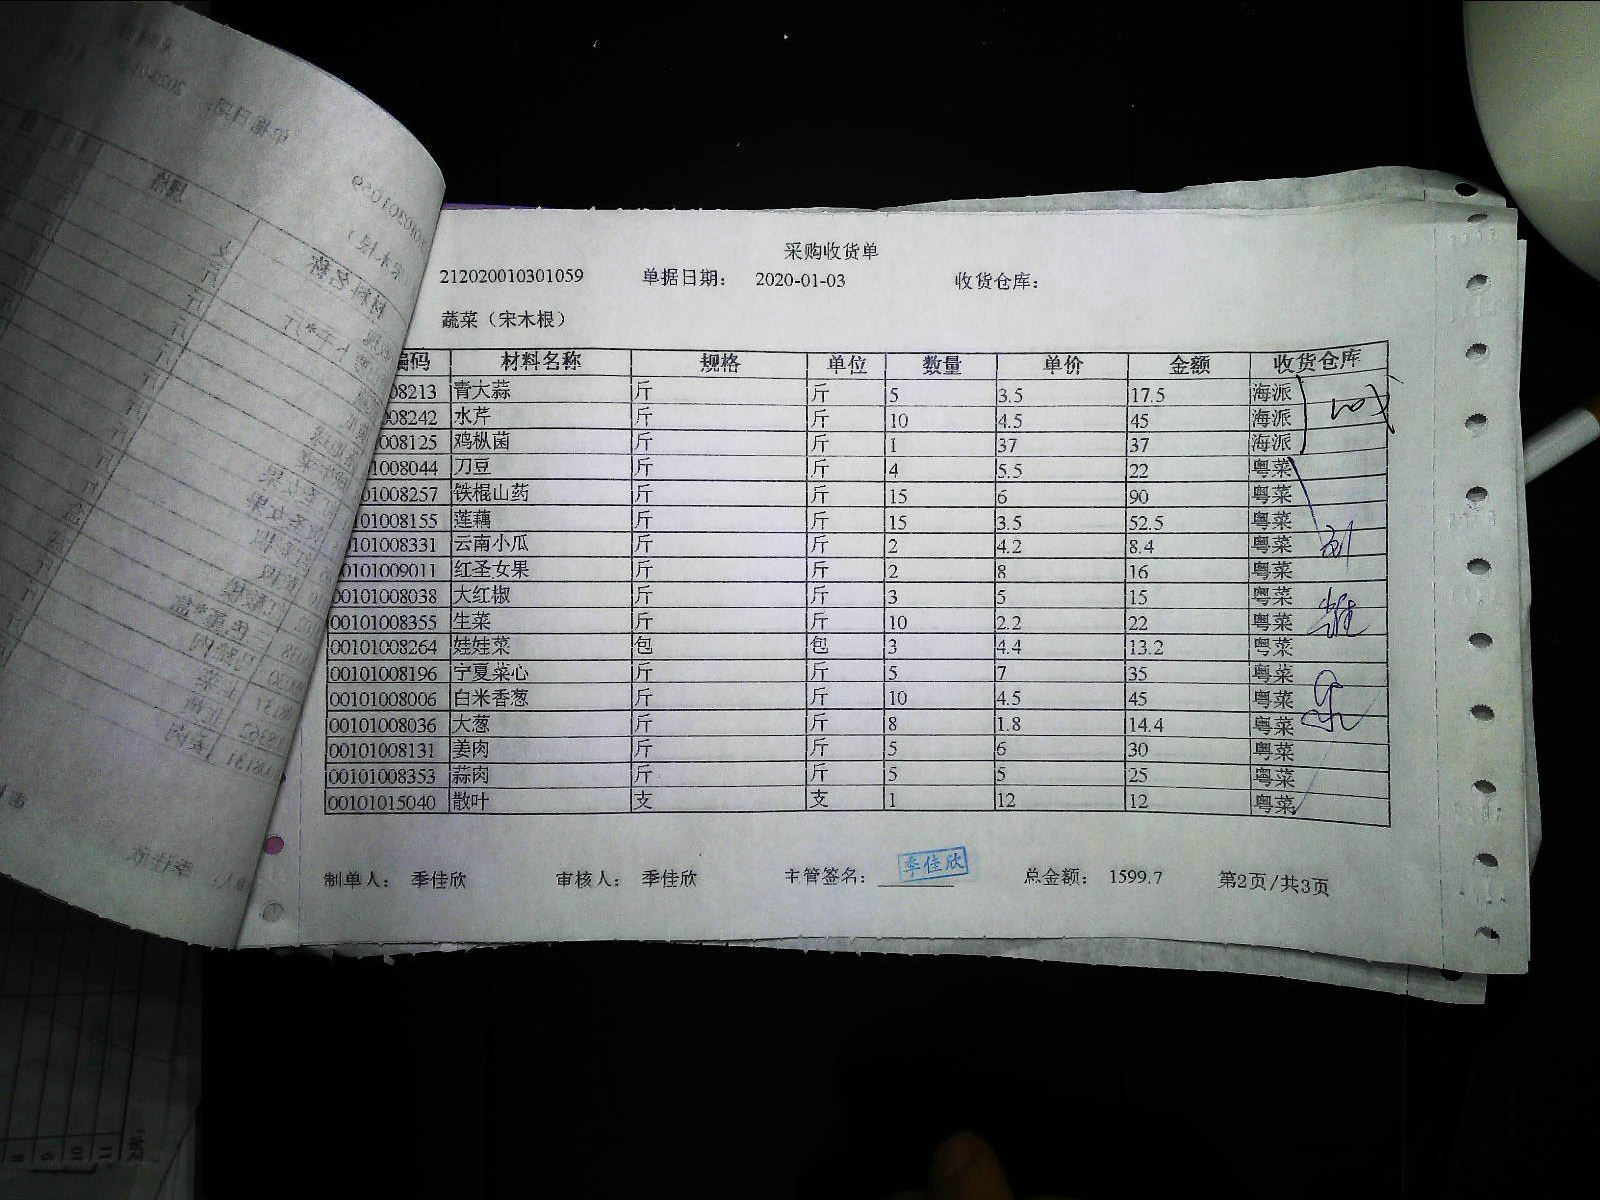 采购收货单
212020010301059 单据日期: 2020-01-03 收货仓库:
蔬菜(宋木根)
编码 材料名称 规格 单位 数量 单价 金额 收货仓库
08213 青大蒜 斤 斤 5 3.5 17.5 海派
008242 水芹 斤 斤 10 4.5 45 海派
008125 鸡枞菌 斤 斤 1 37 37 海派
1008044 刀豆 斤 斤 4 5.5 22 粤菜
01008257 铁棍山药 斤 斤 15 6 90 粤菜
101008155 莲藕 斤 斤 15 3.5 52.5 粤菜
0101008331 云南小瓜 斤 斤 2 4.2 8.4 粤菜
0101009011 红圣女果 斤 斤 2 8 16 粤菜
00101008038 大红椒 斤 斤 3 5 15 粤菜
00101008355 生菜 斤 斤 10 2.2 22 粤菜
00101008264 娃娃菜 包 包 3 4.4 13.2 粤菜
00101008196 宁夏菜心 斤 斤 5 7 35 粤菜
00101008006 白米香葱 斤 斤 10 4.5 45 粤菜
00101008036 大葱 斤 斤 8 1.8 14.4 粤菜
00101008131 姜肉 斤 斤 5 6 30 粤菜
00101008353 蒜肉 斤 斤 5 5 25 粤菜
00101015040 散叶 支 支 1 12 12 粤菜
制单人: 季佳欣 审核人: 季佳欣 主管签名: 季佳欣 总金额: 1599.7 第2页/共3页